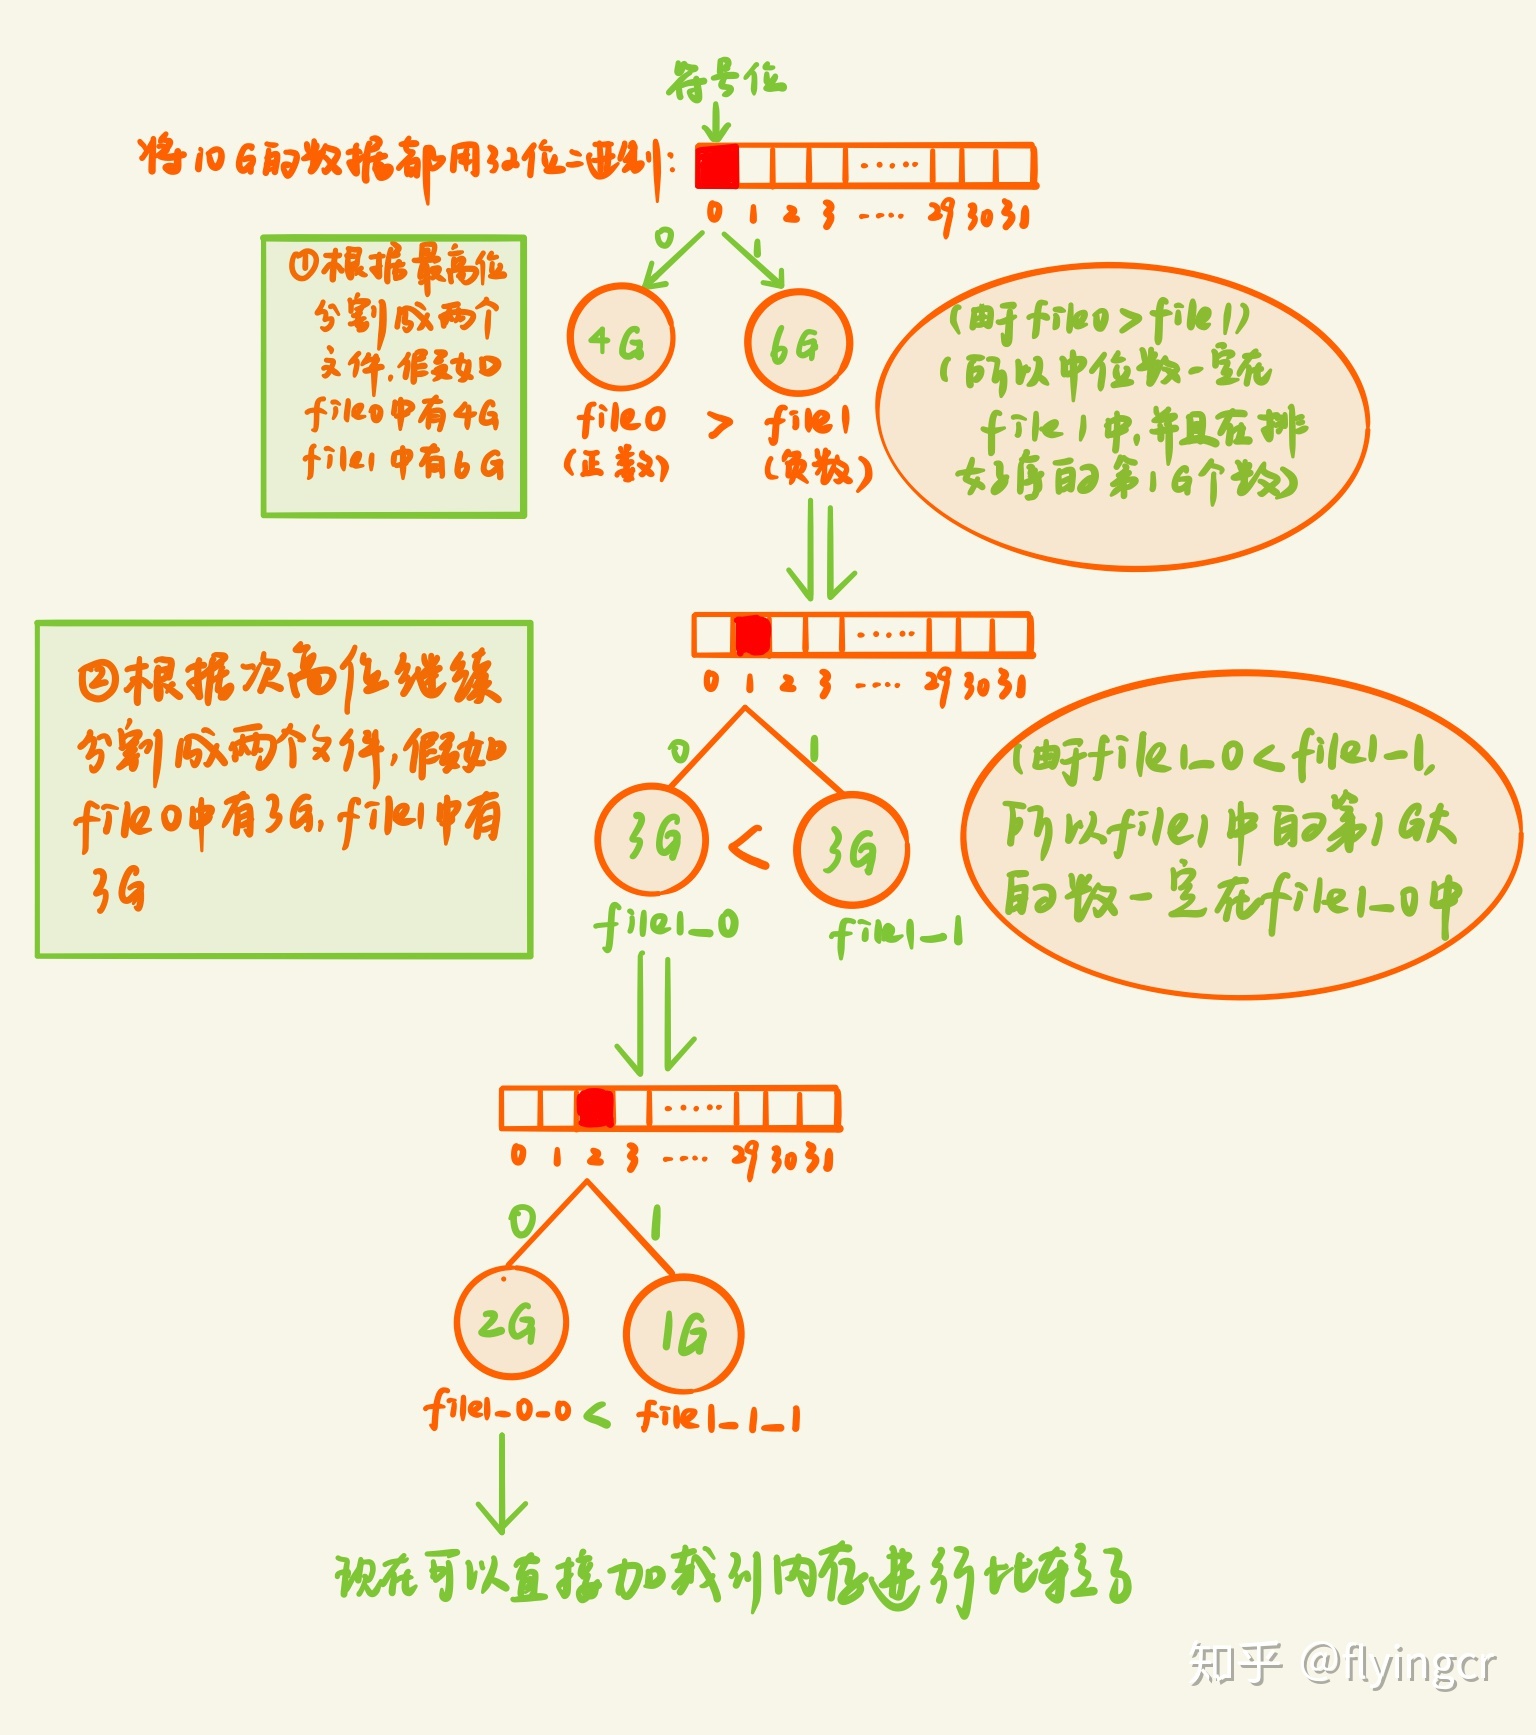 符号位
将10G的数据都用32位二进制:
0 1 2 3 ····· 29 30 31
0 1
①根据最高位
分割成两个
文件,假如
file0中有4G
file1中有6G
4G 6G
file0 > file1
(正数) (负数)
(由于file0>file1)
(所以中位数一定在
file1中,并且在排
好序的第1G个数)
0 1 2 3 ····· 29 30 31
②根据次高位继续
分割成两个文件,假如
file0中有3G,file1中有
3G
0 1
3G < 3G
file1_0 file1_1
(由于file1_0<file1-1,
所以file1中的第1G大
的数一定在file1_0中
0 1 2 3 ····· 29 30 31
0 1
2G 1G
file1_0_0 < file1_1_1
现在可以直接加载到内存进行比较了
知乎 @flyingcr